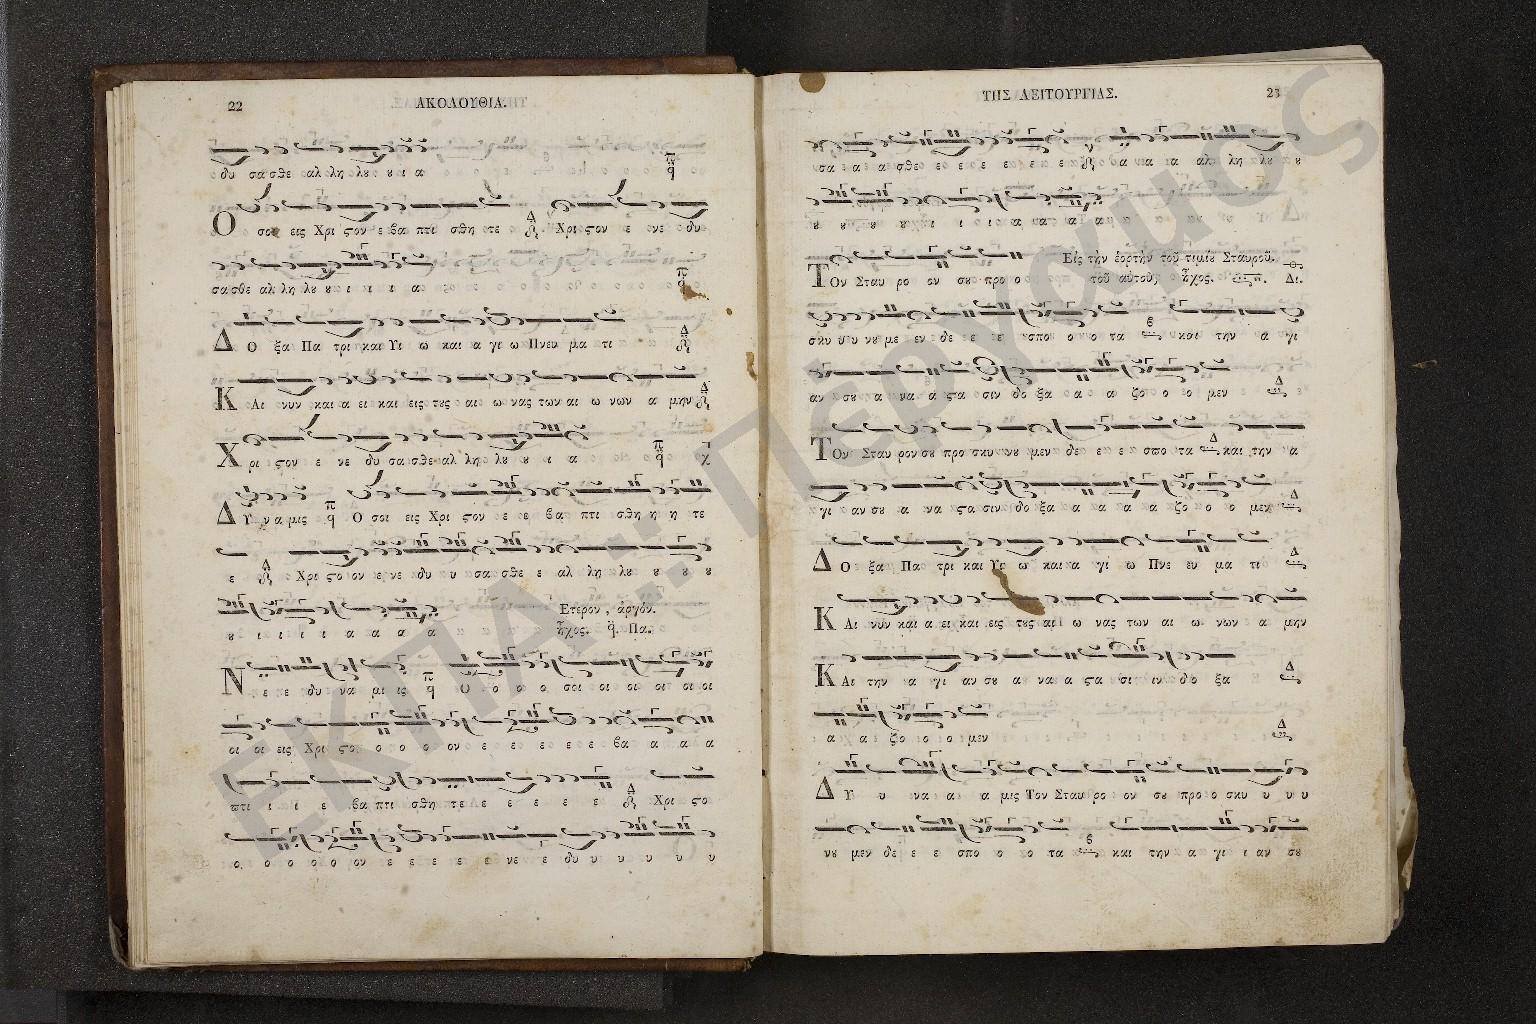 22
ΑΚΟΛΟΥΘΙΑ.
δυ σασθε αλ λη λου ου ι α
Ο σοι εις Χρι ϛον ε βα πτι σθη τε Χρι ϛον ε νε δυ
σασθε αλ λη λȣ ȣ ι ι ι α
Δ Ο ξα Πα τρι και Υι ω και α γι ω Πνευ μα τι
Κ Αι νυν και α ει και εις τȣς αι ω νας των αι ω νων α μην
Χ ρι ϛον ε νε δυ σασθε αλ λη λȣ ȣ ι α
Δ Υ να μις Ο σοι εις Χρι ϛον ε ε βα πτι σθη η η τε
ε Χρι ϛο ον ε νε δυ υ σα σθε ε αλ λη λȣ ȣ ȣ ȣ
ȣ ι ι ι ι α α α α
Ετερον, αργόν.
ἦχος. Πα.
Ν ε ε δυ να μι ις Ο ο ο ο σοι οι οι οι οι οι
οι οι εις Χρι ϛο ο ο ο ον ε ε ε ε ε βα α α α
πτι ι ι ε βα πτι σθη τε ε ε ε ε ε Χρι ϛο
ο ο ο ο ο ον ε ε ε ε ε νε ε δυ υ υ υ υ υ
ΤΗΣ ΛΕΙΤΟΥΡΓΙΑΣ.
23
σα α α ασθε ε ε ε ε ε ε α α α α αλ λη λȣ ȣ
ȣ ȣ ȣ ȣ ι ι ι α α α α
Εἰς τὴν ἑορτὴν τοῦ τιμίȣ Σταυροῦ.
Τ Ον Σταυ ρο ον σȣ προ ο
τοῦ αὐτοῦ, ἦχος. Δι.
σκυ υ υ νȣ με εν δε ε ε σπο ο ο τα και την α γι
αν σȣ α να α ϛα σιν δο ξα α α α ζο ο ο μεν
Τ Ον Σταυ ρον σȣ προ σκυ νȣ μεν δε ε ε σπο τα και την α
γι αν σȣ α να ϛα σιν δο ξα α α α α ζο ο ο μεν
Δ Ο ξα Πα τρι και Υι ω και α γι ω Πνε ευ μα τι
Κ Αι νυν και α ει και εις τȣς αι ω νας των αι ω νων α μην
Κ Αι την α γι αν σȣ α να α ϛα σι ιν δο ξα
α α ζο ο ο μεν
Δ Υ υ να α α μις Τον Σταυ ρο ον σȣ προ ο σκυ υ υ υ
νȣ μεν δε ε ε σπο ο ο τα και την α α γι ι αν σȣ
ΕΚΠΑ: Πέργαμος